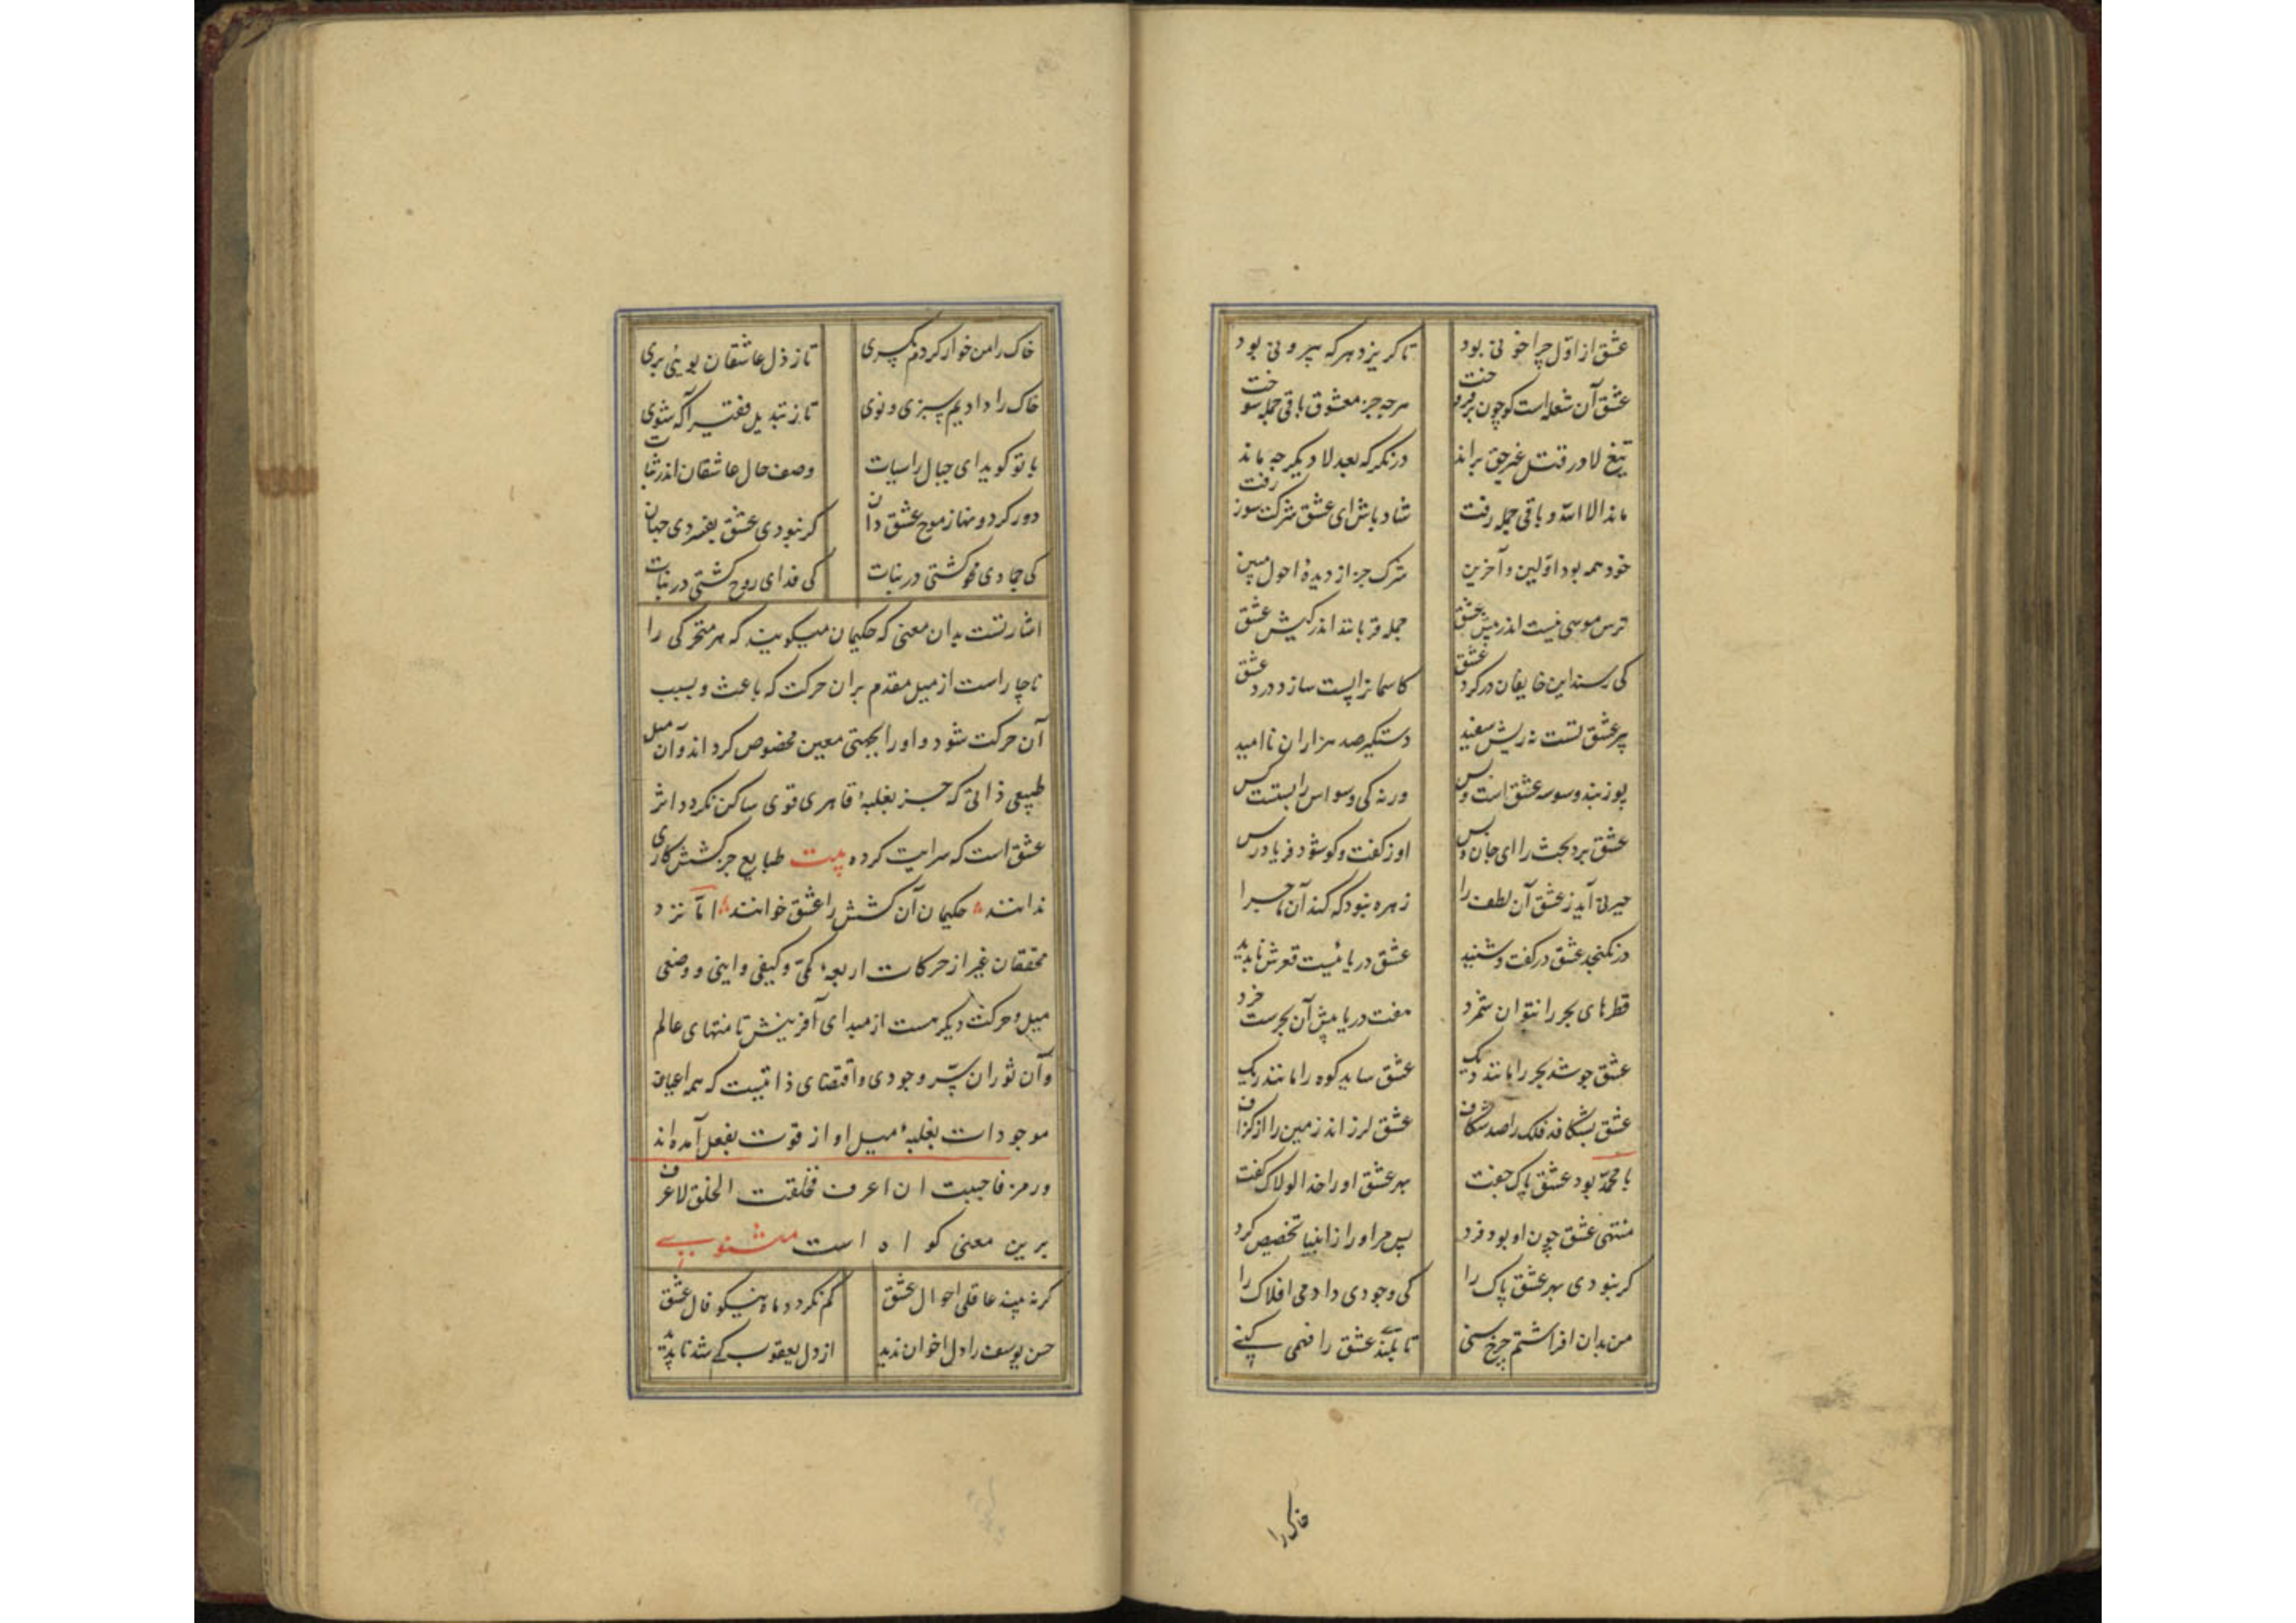 عشق از اوّل چرا خونی بود تا کریزد هر که بیرونی بود
عشق آن شعله است کو چون برفروخت هرچه جز معشوق باقی جمله سوخت
تیغ لا در قتل غیر حق براند در نکر که بعد لا دیکر چه ماند
ماند الا الله و باقی جمله رفت شاد باش ای عشق شرکت سوز رفت
خود همه بود اوّلین و آخرین شرک جز از دیدهٔ احول مبین
ترس مویی نیست اندر پیش عشق جمله قربانند اندر کیش عشق
کی رسند این خایفان در کرد عشق کاسمانرا پست سازد درد عشق
پیر عشق تست نه ریش سفید دستکیر صد هزاران ناامید
پوزبند وسوسه عشق است و بس ورنه کی وسواس را بستست کس
عشق برد بحث را ای جان و بس او ز کفت و کو شود فریادرس
حیرتی آید ز عشق آن لطف را زهره نبود که کند آن ماجرا
در نکنجد عشق در کفت و شنید عشق دریائیست قعرش ناپدید
قطرهای بحر را نتوان شمرد هفت دریا پیش آن بحرست خرد
عشق جوشد بحر را مانند دیک عشق ساید کوه را مانند ریک
عشق بشکافد فلک را صد شکاف عشق لرزاند زمین را از کزاف
با محمّد بود عشق پاک جفت بهر عشق او را خدا لولاک کفت
منتهی عشق چون او بود فرد پس مر او را ز انبیا تخصیص کرد
کر نبودی بهر عشق پاک را کی وجودی دادمی افلاک را
من بدان افراشتم چرخ سنی تا بلندی عشق را فهمی کنی
خاک را
خاک را من خوار کردم یکسری تا ز ذل عاشقان بوئی بری
خاک را دادیم سبزی و نوی تا ز تبدیل فقیر آکه شوی
با تو کوید ای جبال راسیات وصف حال عاشقان اندر ثبات
دور کردونها ز موج عشق دان کر نبودی عشق بفسردی جهان
کی جمادی محو کشتی در نبات کی فدای روح کشتی در نبات
اشارتست بدان معنی که حکیمان میکویند که هر متحرکی را
ناچار است از میل مقدم بر آن حرکت که باعث و سبب
آن حرکت شود و او را بجهتی معین مخصوص کرداند و آن میل
طبیعی ذاتی که جز بغلبهٔ قاهری قوی ساکن نکردد اثر
عشق است که سرایت کرده بیت طبایع جز کشش کاری
ندانند حکیمان آن کشش را عشق خوانند امّا نزد
محققان غیر از حرکات اربعه کمّی و کیفی و اینی و وضعی
میل و حرکت دیکر هست از مبدای آفرینش تا منتهای عالم
و آن ثوران سرّ وجودی و اقتضای ذاتیست که همه اعیان
موجودات بغلبهٔ میل او از قوت بفعل آمده اند
و رمز فاحببت ان اعرف فخلقت الخلق لاعرف
برین معنی کواه است مثنوی
کر نه بیند عاقلی احوال عشق کم نکردد ماه نیکو فال عشق
حسن یوسف را دل اخوان ندید از دل یعقوب کی شد ناپدید